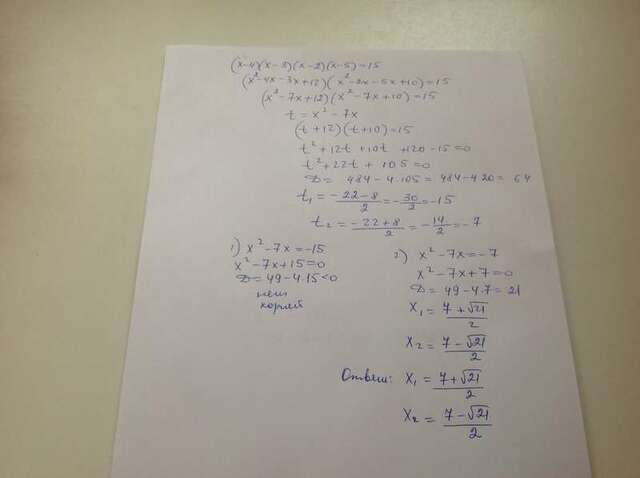 (x-4)(x-3)(x-2)(x-5)=15
(x²-4x-3x+12)(x²-2x-5x+10)=15
(x²-7x+12)(x²-7x+10)=15
t=x²-7x
(t+12)(t+10)=15
t²+12t+10t+120-15=0
t²+22t+105=0
D=484-4·105=484-420=64
t₁=(-22-8)/2=-30/2=-15
t₂=(-22+8)/2=-14/2=-7
1) x²-7x=-15
x²-7x+15=0
D=49-4·15<0
нет
корней
2) x²-7x=-7
x²-7x+7=0
D=49-4·7=21
x₁=(7+√21)/2
x₂=(7-√21)/2
Ответ: x₁=(7+√21)/2
x₂=(7-√21)/2